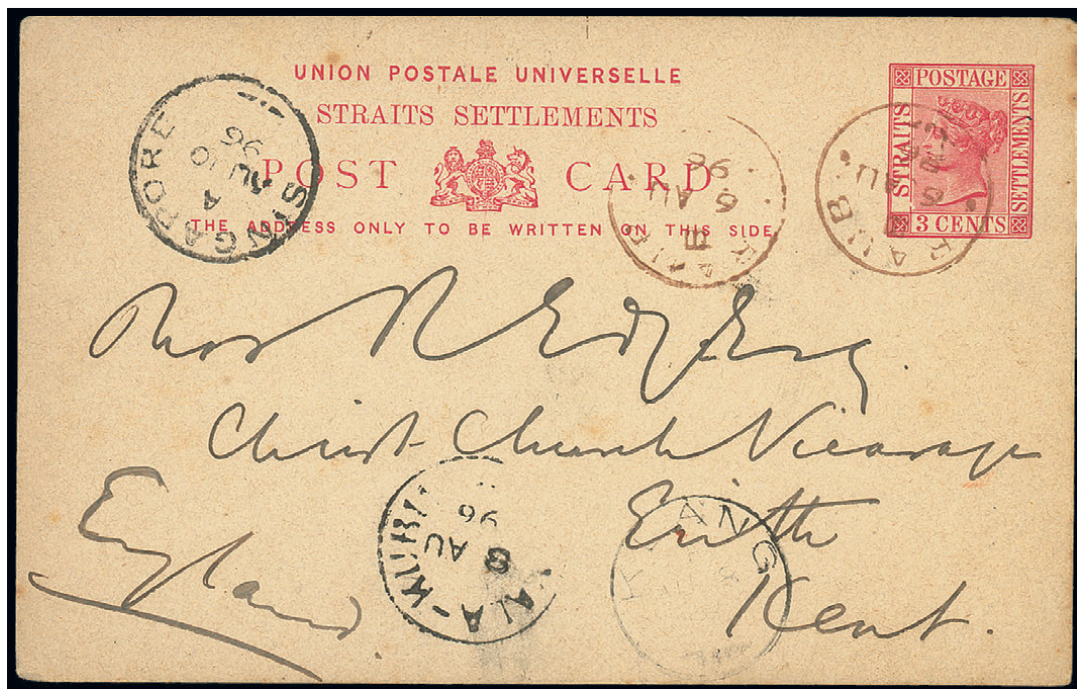 UNION POSTALE UNIVERSELLE
STRAITS SETTLEMENTS
POST CARD
THE ADDRESS ONLY TO BE WRITTEN ON THIS SIDE.
POSTAGE
STRAITS
SETTLEMENTS
3 CENTS
SINGAPORE
A
AU 10
96
RAUB
6 AU
96
RAUB
AU
Esq.
Christ Church Vicarage
Erith
Kent.
England
ALA-KUB
8 AU
96
K ANG